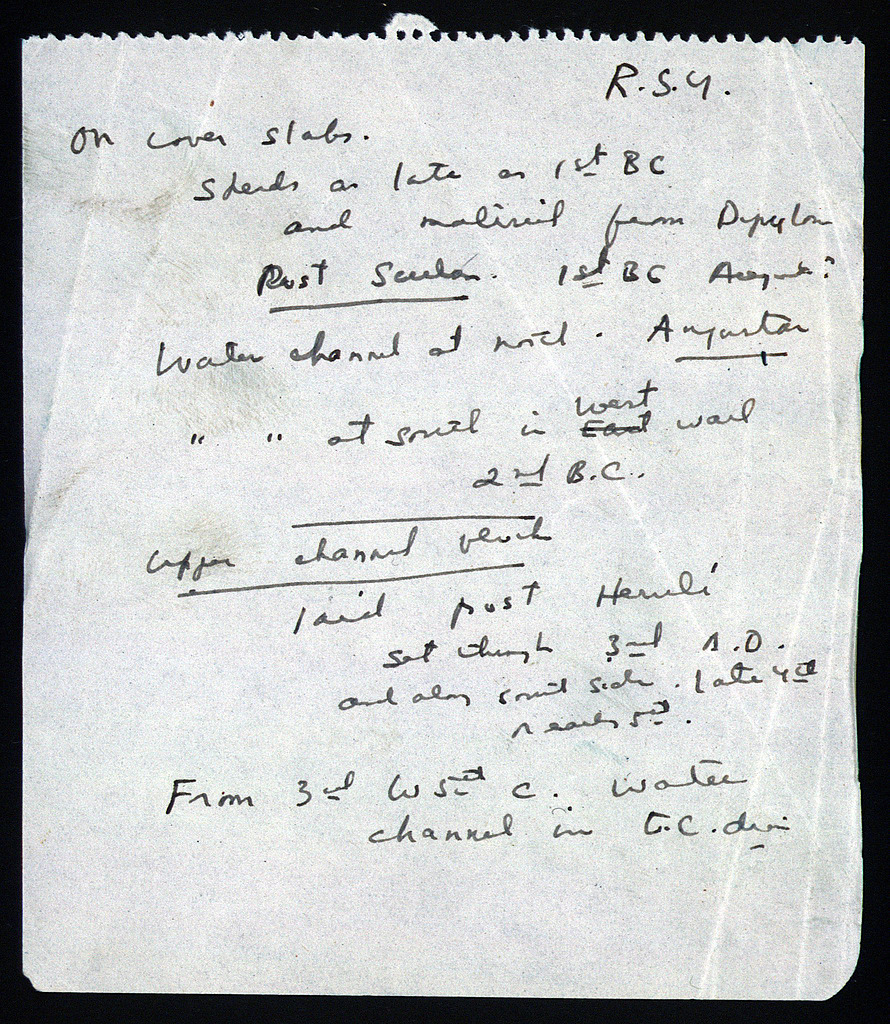 R.S.Y.
on cover slabs.
Sherds as late as 1st BC
and material from Dipylon
Post Sullan. 1st BC August?
Water channel at north. Augustan
" " at south in West East wall
2nd B.C.
Upper channel block
laid post Heruli
set through 3rd A.D.
and along south side. late 4th
early 5th.
From 3rd to 5th c. water
channel in T.C. drain